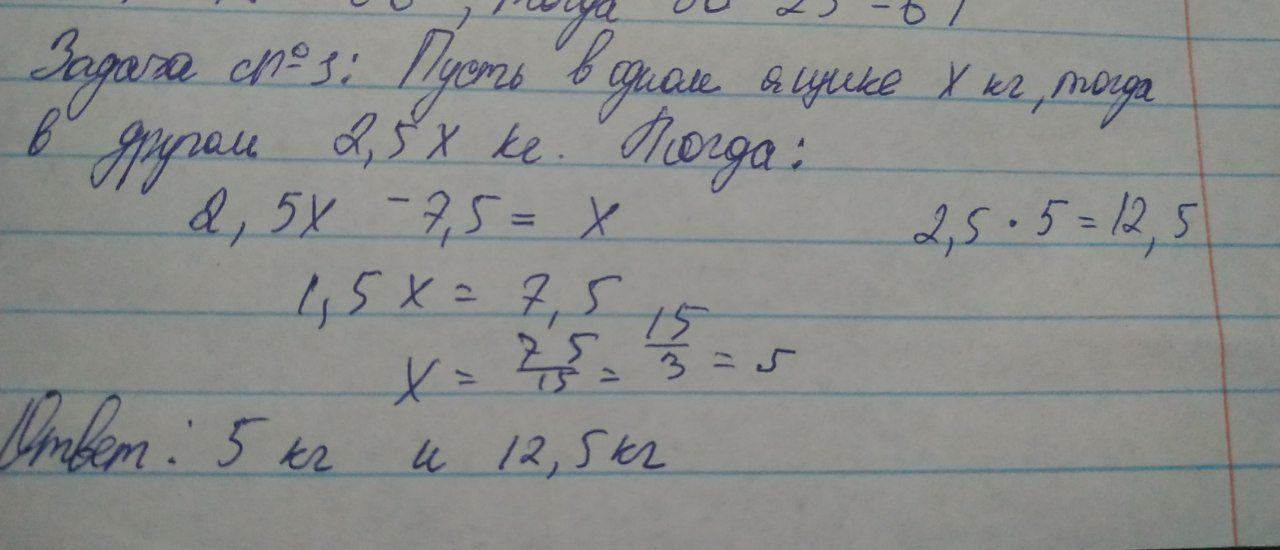 , тогда
Задача №3: Пусть в одном ящике x кг, тогда
в другом 2,5x кг. Тогда:
2,5x - 7,5 = x 2,5 · 5 = 12,5
1,5x = 7,5
x = 75/15 = 15/3 = 5
Ответ: 5 кг и 12,5 кг